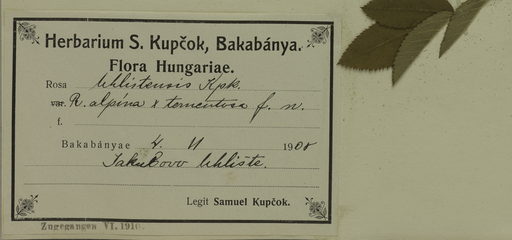 Herbarium S. Kupčok, Bakabánya.
Flora Hungariae.
Rosa uhlistensis Kpk.
var. R. alpina x tomentosa f. n.
f.
Bakabányae 4. VI 1908
Jakubovo uhlište.
Legit Samuel Kupčok.
Zugegangen VI. 1910.